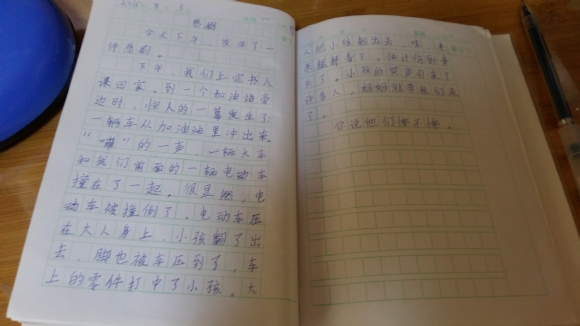 悲剧
今天下午，发生了一
件悲剧。
下午，我们上完书人
课回家，到一个加油站旁
边时，惊人的一幕发生了
一辆车从加油站里冲出来。
“嘣”的一声，一辆大车
和我们前面的一辆电动车
撞在了一起。很显然，电
动车被撞倒了，电动车压
在大人身上，小孩翻了出
去，脚也被车压到了，车
上的零件打中了小孩。大
人把小孩翻出去，
来了。小孩的哭声引来了
许多人，妈妈就带我们走
了。
你说他们惨不惨。